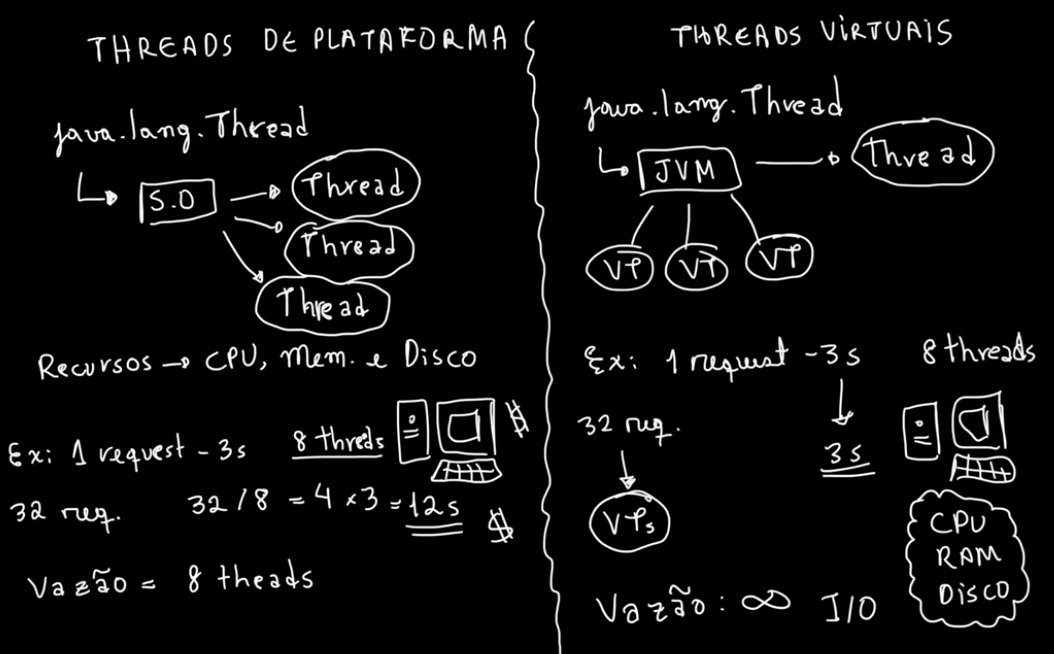 THREADS DE PLATAFORMA
java.lang.Thread
S.O
Thread
Thread
Thread
Recursos → CPU, Mem. e Disco
Ex: 1 request - 3s 8 threds $
32 req. 32/8 = 4 x 3 = 12s $
Vazão = 8 theads
THREADS VIRTUAIS
java.lang.Thread
JVM Thread
VT VT VT
Ex: 1 request - 3s 8 threads
32 req.
3s
VTs
CPU
RAM
Disco
Vazão: ∞ I/O